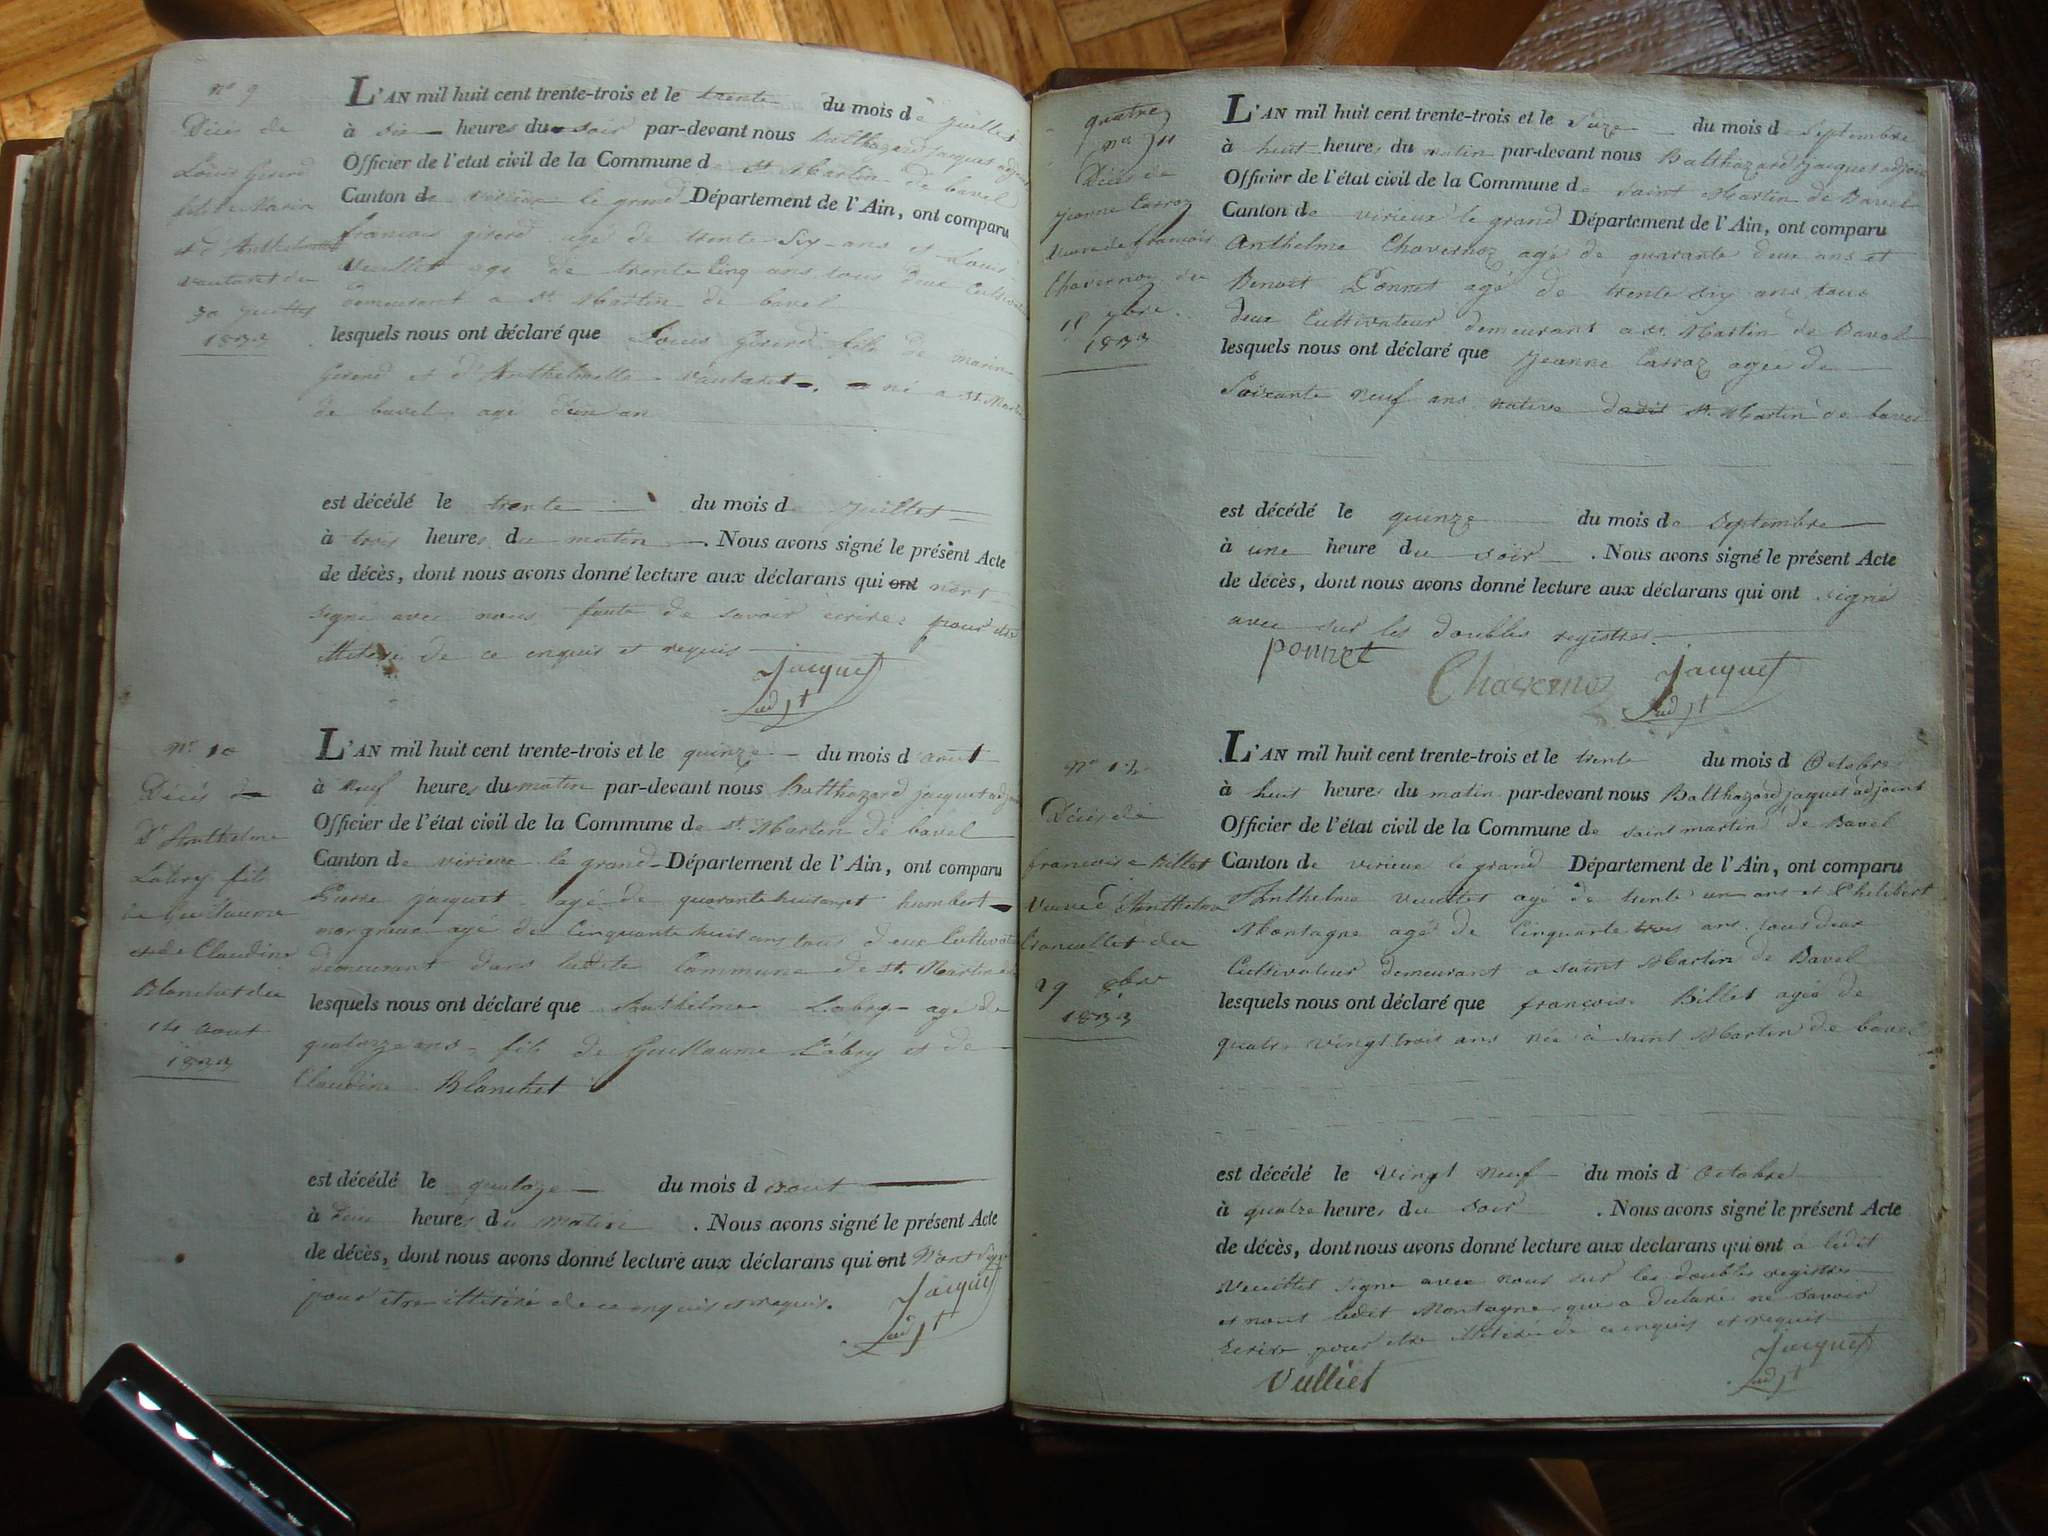 n° 9
Décès de
Louis Girerd
fils de Marin
et d'Anthelmette
vautaret du
30 juillet
1833
L'AN mil huit cent trente-trois et le trente du mois de juillet
à six heures du soir par-devant nous Balthazard jacquet adjoint
Officier de l'etat civil de la Commune de St Martin de bavel
Canton de virieux le grand Département de l'Ain, ont comparu
francois girerd agé de trente Six ans et Louis
vuillet age de trente Cinq ans tous deux Cultivateur
demeurant a St. Martin de bavel
lesquels nous ont déclaré que Louis Girerd fils de marin
Girerd et d'Anthelmette vautaret né a St. Martin
de bavel agé d'un an
est décédé le trente du mois de juillet
à trois heures du matin. Nous avons signé le présent Acte
de décès, dont nous avons donné lecture aux déclarans qui ont n'ont
signé avec nous faute de savoir ecrire pour etre
illitéré de ce enquis et requis
Jacquet
adjt
n° 10
Décès de
D'Anthelme
Labry fils
de Guillaume
et de Claudine
Blanchet du
14 aout
1833
L'AN mil huit cent trente-trois et le quinze du mois d'aout
à neuf heures du matin par-devant nous Balthazard jacquet adjoint
Officier de l'état civil de la Commune de St. Martin de bavel
Canton de virieux le grand Département de l'Ain, ont comparu
Pierre jacquet agé de quarante huit ans et humbert
margueu agé de Cinquante huit ans tous deux Cultivateur
demeurant dans ladite Commune de St. Martin
lesquels nous ont déclaré que Anthelme Labry agé de
quatorze ans fils de Guillaume Labry et de
Claudine Blanchet
est décédé le quatoze du mois d aout
à deux heures du matin. Nous avons signé le présent Acte
de décès, dont nous avons donné lecture aux déclarans qui ont N'ont signé
pour etre illitéré de ce enquis et requis.
Jacquet
adjt
quatre
n° 11
Décès de
jeanne Carraz
veuve de francois
Chavernoz du
15 7bre
1833
L'AN mil huit cent trente-trois et le Seize du mois de Septembre
à huit heures du matin par-devant nous Balthazard jacquet adjoint
Officier de l'état civil de la Commune de saint Martin de Bavel
Canton de virieux le grand Département de l'Ain, ont comparu
Anthelme Chavernoz agé de quarante deux ans et
Benoit Ponnet agé de trente six ans tous
deux Cultivateur demeurant a St. Martin de Bavel
lesquels nous ont déclaré que jeanne Carraz agée de
Soixante neuf ans native dudit St. Martin de bavel
est décédé le quinze du mois de septembre
à une heure du soir. Nous avons signé le présent Acte
de décès, dont nous avons donné lecture aux déclarans qui ont signé
avec sur les doubles registres
ponnet
Chavernoz
Jacquet
adjt
n° 12
Décès de
francoise Billet
veuve d'Anthelme
du
29 8bre
1833
L'AN mil huit cent trente-trois et le trente du mois d Octobre
à huit heures du matin par-devant nous Balthazard jacquet adjoint
Officier de l'état civil de la Commune de saint martin de Bavel
Canton de virieux le grand Département de l'Ain, ont comparu
Anthelme vuillet agé de trente un ans et Philibert
Montagne agé de Cinquante trois ans tous deux
Cultivateur demeurant a saint Martin de Bavel
lesquels nous ont déclaré que françoise Billet agée de
quatre vingt trois ans née à saint Martin de bavel
est décédé le vingt neuf du mois d'Octobre
à quatre heures du soir. Nous avons signé le présent Acte
de décès, dont nous avons donné lecture aux declarans qui ont a ledit
vuillet signé avec nous sur les doubles registres
et non ledit Montagne qui a déclaré ne savoir
Ecrire pour etre illitéré de ce enquis et requis
Jacquet
adjt
Vulliet